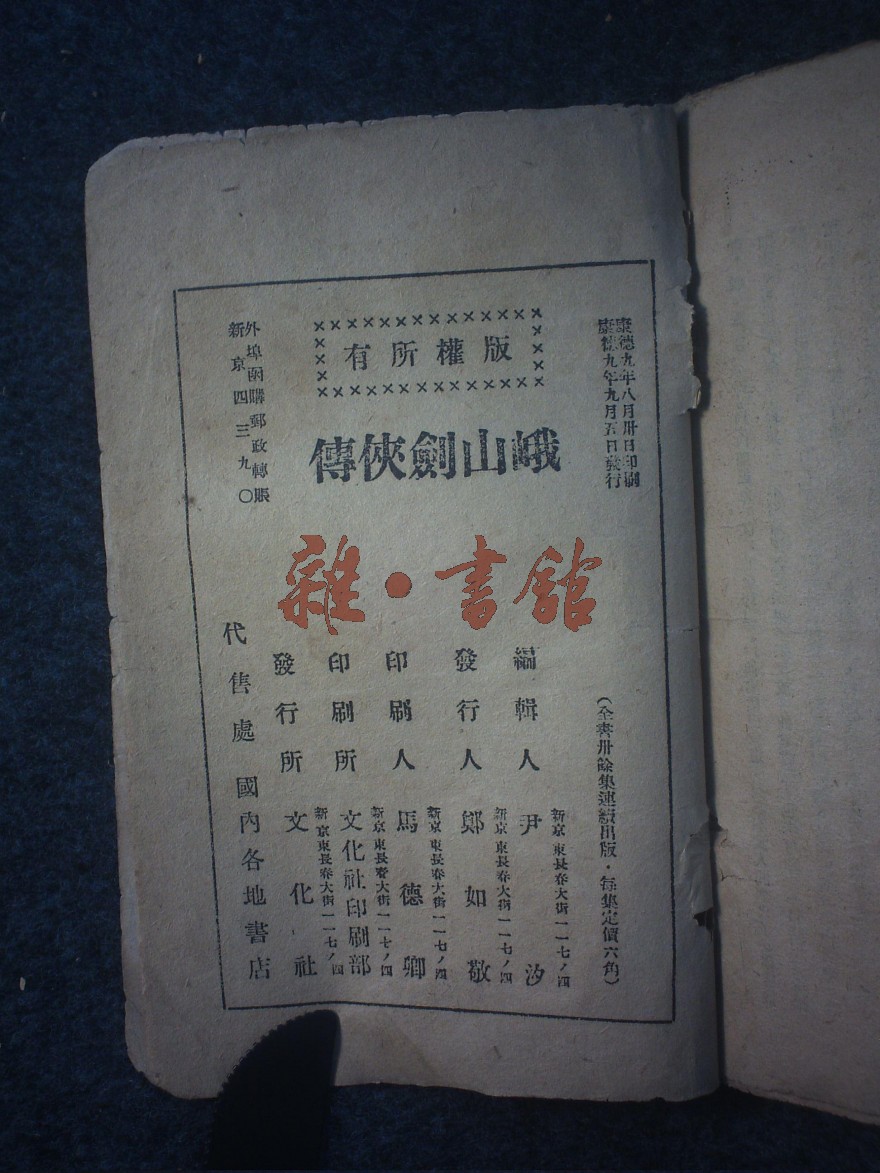 康德九年八月卅日印刷
康德九年九月五日發行
(全書卅餘集連續出版·每集定價六角)
版權所有
峨山劍俠傳
雜·書館
新京東長春大街一一七ノ四
編輯人 尹汐
新京東長春大街一一七ノ四
發行人 鄭如敬
新京東長春大街一一七ノ四
印刷人 馬德卿
新京東長春大街一一七ノ四
印刷所 文化社印刷部
新京東長春大街一一七ノ四
發行所 文化社
外埠函購郵政轉賬
新京四三九〇
代售處 國內各地書店